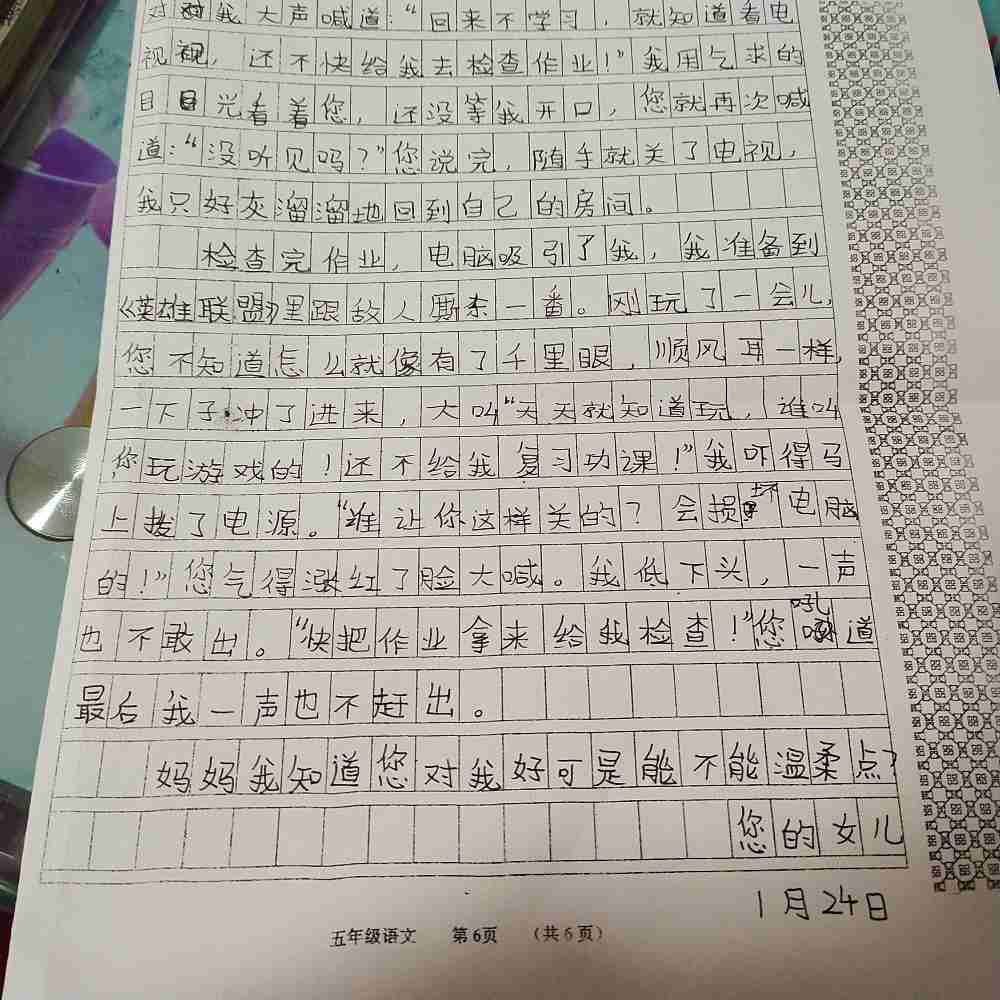 对我大声喊道：“回来不学习，就知道看电
视视，还不快给我去检查作业！”我用乞求的
目目光看着您，还没等我开口，您就再次喊
道：“没听见吗？”您说完，随手就关了电视，
我只好灰溜溜地回到自己的房间。
检查完作业，电脑吸引了我，我准备到
《英雄联盟》里跟敌人厮杀一番。刚玩了一会儿，
您不知道怎么就像有了千里眼，顺风耳一样，
一下子冲了进来，大叫“天天就知道玩，谁叫
你玩游戏的！还不给我复习功课！”我吓得马
上拨了电源。“谁让你这样关的？会损坏电脑
的！”您气得涨红了脸大喊。我低下头，一声
也不敢出。“快把作业拿来给我检查！”您吼道
最后我一声也不赶出。
妈妈我知道您对我好可是能不能温柔点？
您的女儿
1月24日
五年级语文 第6页 （共6页）